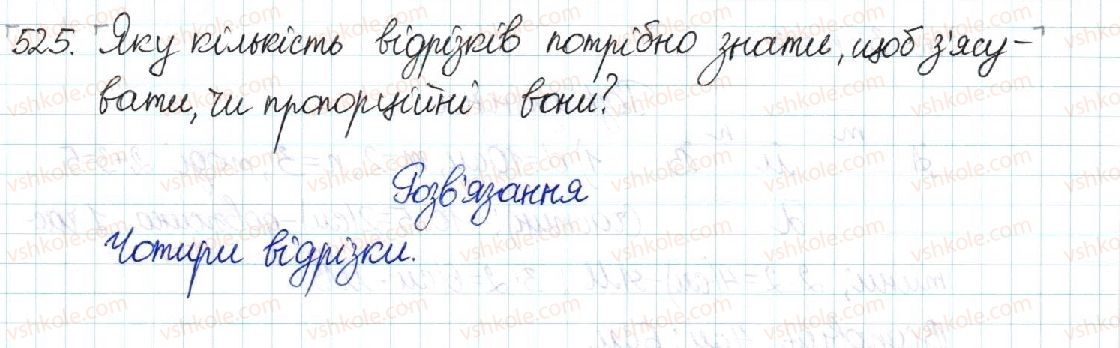 525. Яку кількість відрізків потрібно знати, щоб з'ясу-
вати, чи пропорційні вони?
Розв'язання
Чотири відрізки.